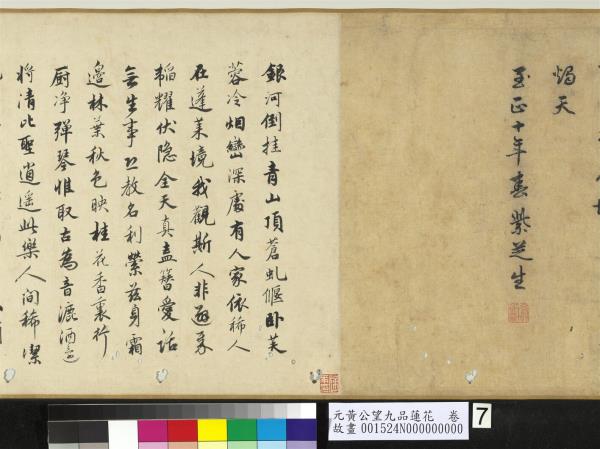 燭天
至正十年春紫芝生
銀河倒挂青山頂蒼虬偃卧芙
蓉冷烟巒深處有人家依稀人
在蓬萊境我觀斯人非避秦
韜耀伏隐全天真盍簪愛話
無生事教名利縈兹身霜
邊林葉秋色映桂花香裏竹
厨净彈琴惟取古為音漉酒還
將清比聖逍遥此樂人间稀潔
元黃公望九品蓮花 卷
故畫 001524N000000000
7